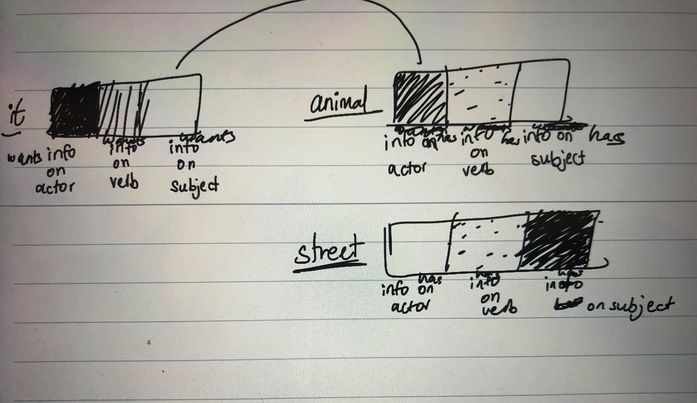 it
wants info
on
actor
wants
info
on
verb
wants
info
on
subject
animal
info on has
actor
info has
on
verb
info on has
subject
street
has
info on
actor
has
info
on
verb
has
info
on subject